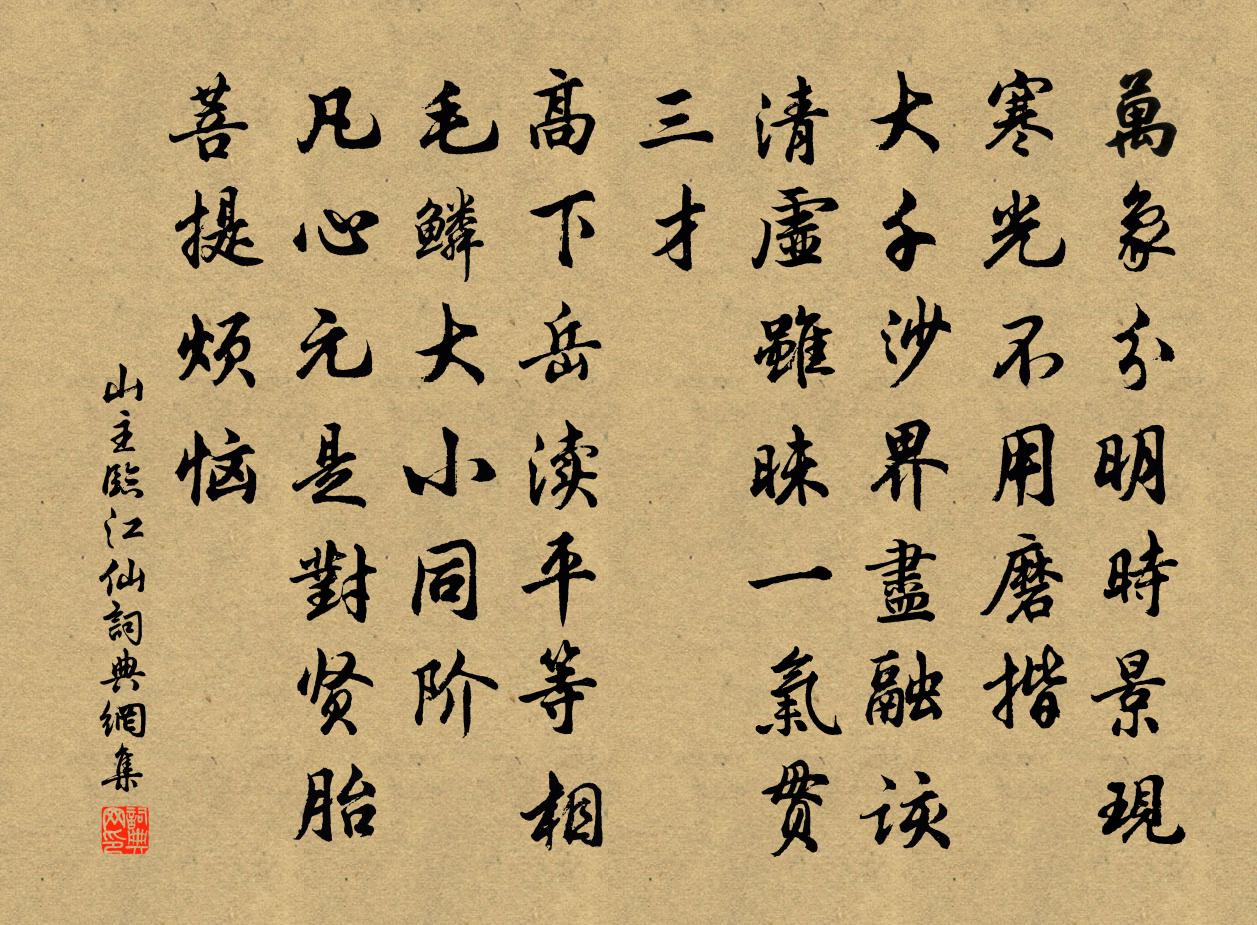 萬象分明時景現
寒光不用磨揩
大千沙界盡融該
清虛雖昧一氣貫
三才
高下岳渎平等相
毛鳞大小同阶
凡心元是對贤胎
菩提烦恼
山主臨江仙詞典網集
詞典网印